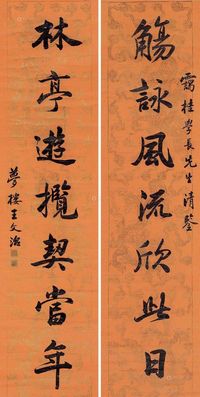 霭桂學長先生清鑒
觴詠風流欣此日
林亭遊攬契當年
夢樓王文治